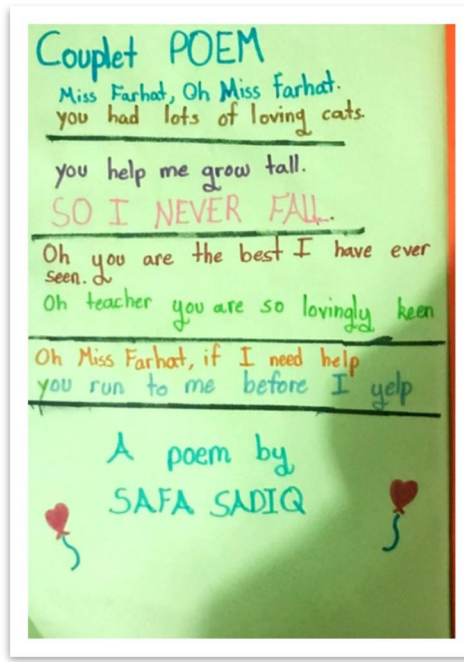 Couplet POEM
Miss Farhat, Oh Miss Farhat.
you had lots of loving cats.
you help me grow tall.
SO I NEVER FALL.
Oh you are the best I have ever
seen.
Oh teacher you are so lovingly keen
Oh Miss Farhat, if I need help
you run to me before I yelp
A poem by
SAFA SADIQ